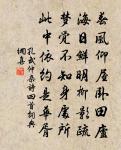 春風仰屋卧田廬
海日鮮明柳影疏
夢覺不知身處所
此中依約是華胥
孔武仲集詩四首詞典
網喜